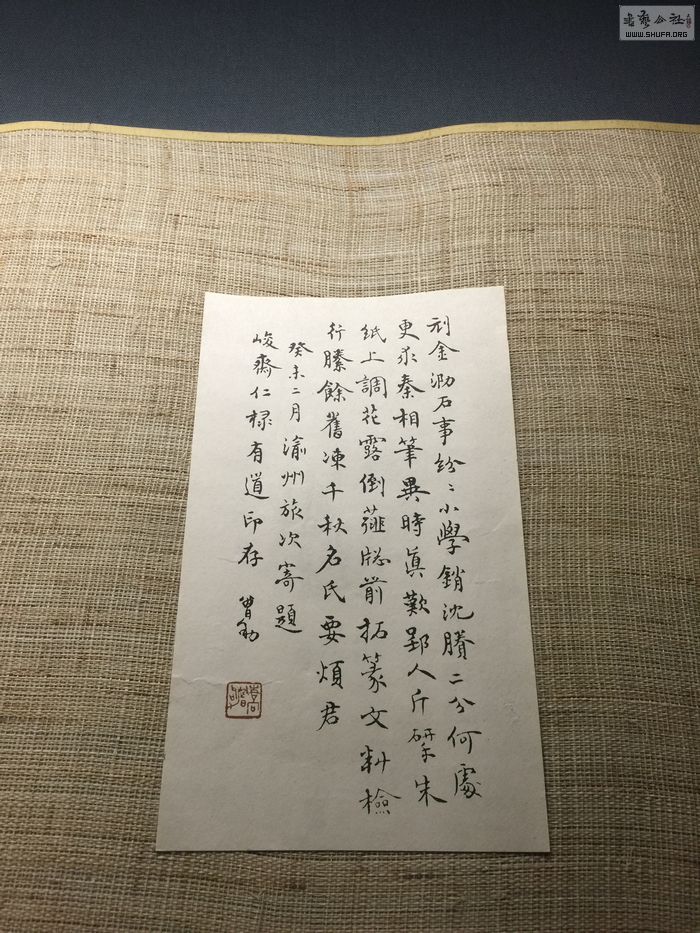 刓金泐石事紛〻小學銷沈賸二分何處
更求秦相筆異時眞歎郢人斤研朱
紙上調花露倒薤牕前拓篆文料檢
行縢餘舊凍千秋名氏要煩君
癸未二月渝州旅次寄題
峻齋仁棣有道印存 曾劬
書藝公社
WWW.SHUFA.ORG